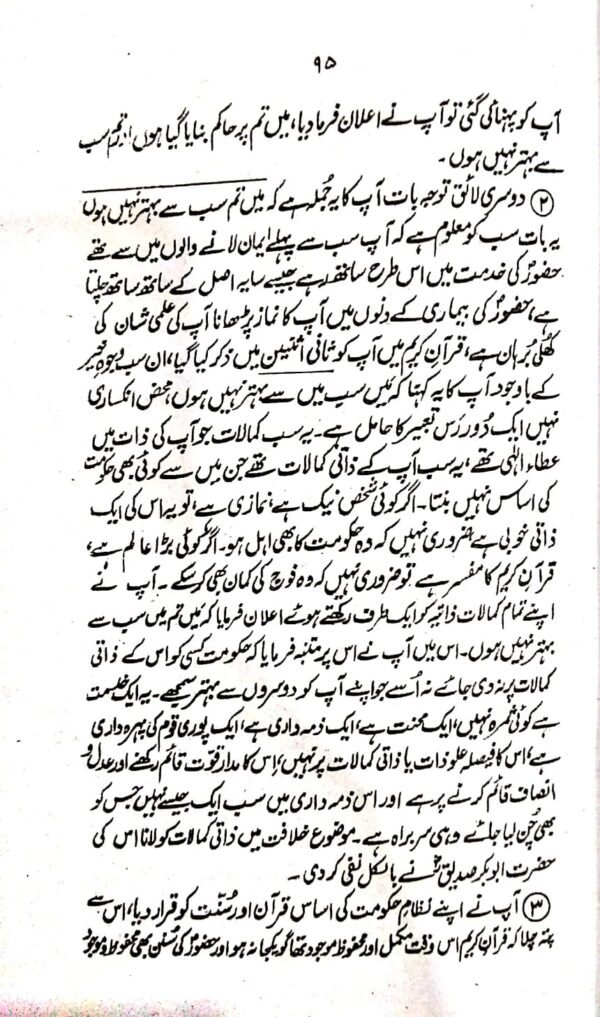 ۹۵
آپ کو پہنائی گئی تو آپ نے اعلان فرما دیا، میں تم پر حاکم بنایا گیا ہوں اور تم سب
سے بہتر نہیں ہوں۔
② دوسری لائق توجہ بات آپ کا یہ جُملہ ہے کہ میں تم سب سے بہتر نہیں ہوں
یہ بات سب کو معلوم ہے کہ آپ سب سے پہلے ایمان لانے والوں میں سے تھے
حضورؐ کی خدمت میں اس طرح ساتھ رہے جیسے سایہ اصل کے ساتھ ساتھ چلتا
ہے، حضورؐ کی بیماری کے دنوں میں آپ کا نماز پڑھانا آپ کی علمی شان کی
کھُلی بُرہان ہے، قرآن کریم میں آپ کو ثانی اثنین میں ذکر کیا گیا، ان سب وجوہِ خیر
کے باوجود آپ کا یہ کہنا کہ میَں سب میں سے بہتر نہیں ہوں، محض انکساری
نہیں ایک دُور رَس تعبیر کا حامل ہے۔ یہ سب کمالات جو آپ کی ذات میں
عطاء الٰہی تھے، یہ سب آپ کے ذاتی کمالات تھے جن میں سے کوئی بھی حکومت
کی اساس نہیں بنتا۔ اگر کوئی شخص نیک ہے، نمازی ہے، تو یہ اس کی ایک
ذاتی خوبی ہے ضروری نہیں کہ وہ حکومت کا بھی اہل ہو۔ اگر کوئی بڑا عالم ہے،
قرآن کریم کا مفسر ہے تو ضروری نہیں کہ وہ فوج کی کمان بھی کر سکے۔ آپ نے
اپنے تمام کمالات ذاتیہ کو ایک طرف رکھتے ہوئے اعلان فرمایا کہ میَں تم میں سب سے
بہتر نہیں ہوں۔ اس میں آپ نے اس پر متنبہ فرمایا کہ حکومت کسی کو اس کے ذاتی
کمالات پر نہ دی جائے نہ اُسے جو اپنے آپ کو دوسروں سے بہتر سمجھے۔ یہ ایک خدمت
ہے کوئی ثمرہ نہیں، ایک محنت ہے، ایک ذمہ داری ہے، ایک پوری قوم کی پہرہ داری
ہے، اس کا فیصلہ علو ذات یا ذاتی کمالات پر نہیں، اِس کا مدار قوت قائم رکھنے اور عدل و
انصاف قائم کرنے پر ہے اور اس ذمہ داری میں سب ایک جیسے نہیں جس کو
بھی چُن لیا جائے وہی سربراہ ہے۔ موضوع خلافت میں ذاتی کمالات کو لانا اس کی
حضرت ابوبکر صدیقؓ نے بالکل نفی کر دی۔
③ آپ نے اپنے نظامِ حکومت کی اساس قرآن اور سُنّت کو قرار دیا، اس سے
پتہ چلا کہ قرآن کریم اس وقت مکمل اور محفوظ موجود تھا گو یکجا نہ ہو اور حضورؐ کی سُنن بھی محفوظ و موجود